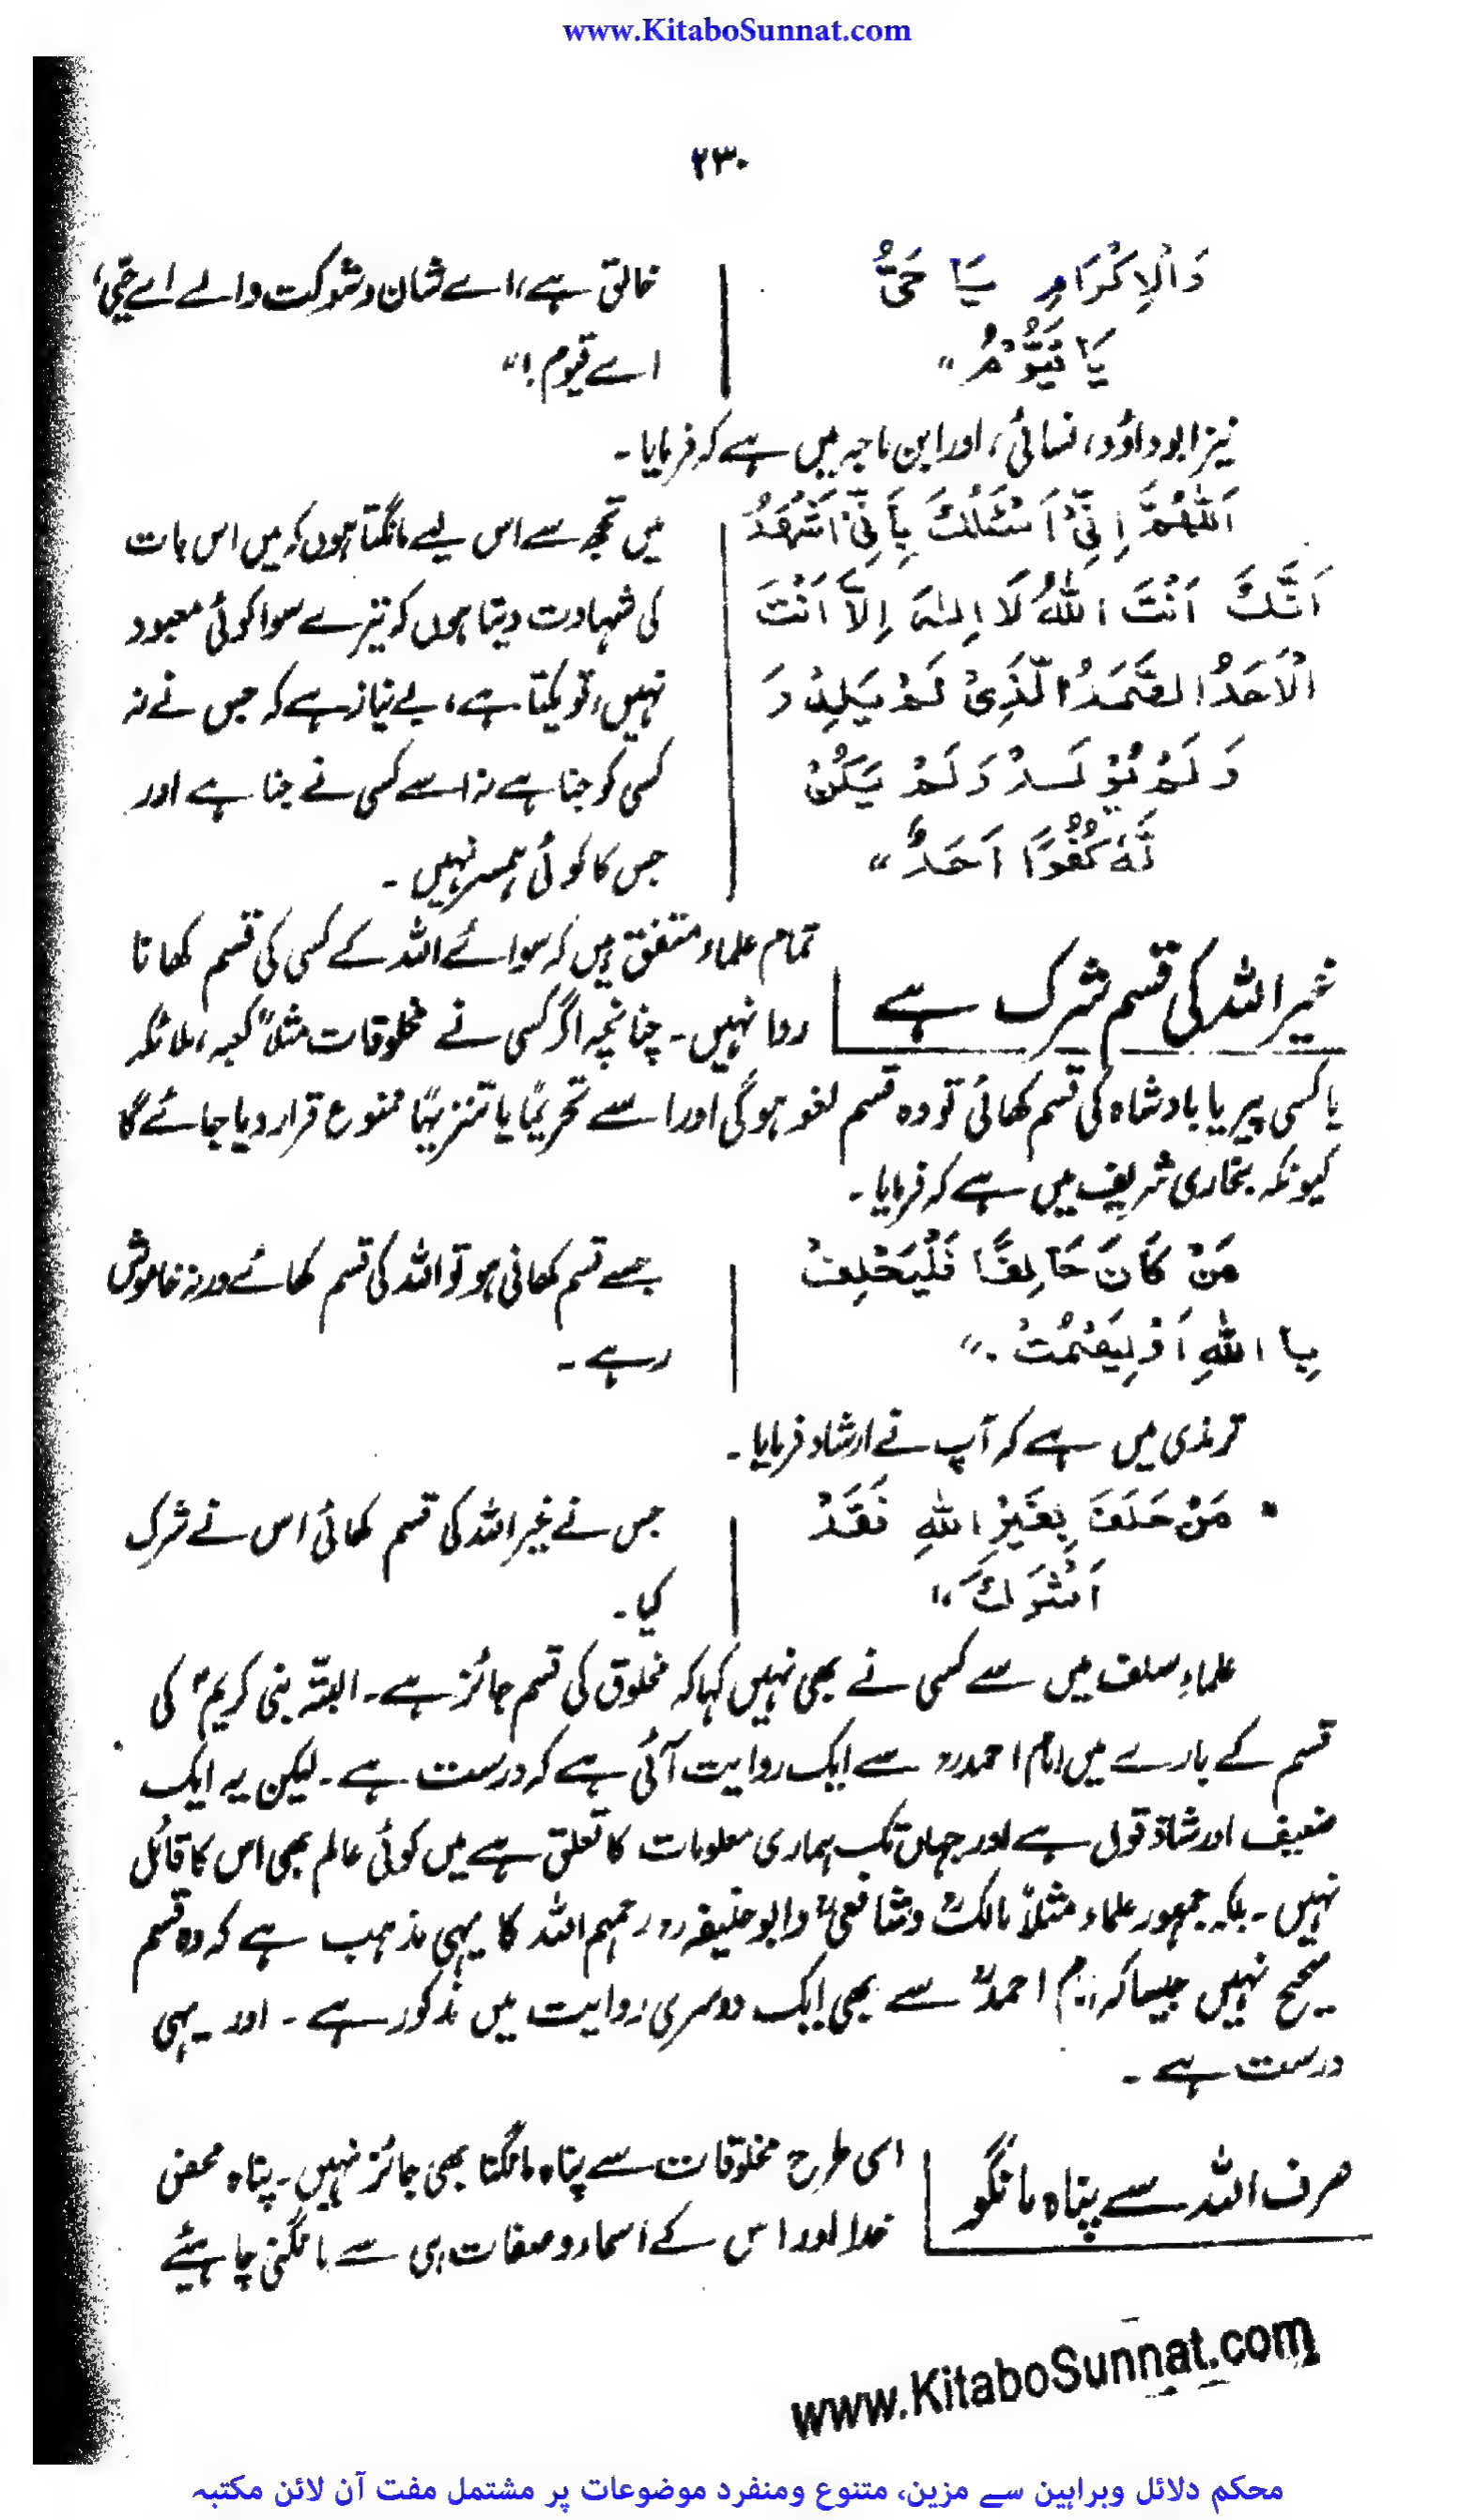 www.KitaboSunnat.com
۲۳۰
وَالْاِکْرَامِ یَا حَیُّ
یَا قَیُّوْمُ "
خالق ہے، اے شان وشوکت والے اے حَیّ،
اے قیوم!"
نیز ابو داؤد، نسائی، اور ابن ماجہ میں ہے کہ فرمایا۔
اَللّٰهُمَّ اِنِّیْ اَسْئَلُکَ بِاَنِّیْ اَشْهَدُ
اَنَّکَ اَنْتَ اللّٰهُ لَا اِلٰهَ اِلَّا اَنْتَ
الْاَحَدُ الصَّمَدُ الَّذِیْ لَمْ یَلِدْ وَ
وَ لَمْ یُوْلَدْ وَ لَمْ یَکُنْ
لَّهٗ کُفُوًا اَحَدٌ "
میں تجھ سے اس لیے مانگتا ہوں کہ میں اس بات
کی شہادت دیتا ہوں کہ تیرے سوا کوئی معبود
نہیں، تو یکتا ہے، بے نیاز ہے کہ جس نے نہ
کسی کو جنا ہے نہ اسے کسی نے جنا ہے اور
جس کا کوئی ہمسر نہیں۔
غیر اللہ کی قسم شرک ہے
تمام علماء متفق ہیں کہ سوائے اللہ کے کسی کی قسم کھانا
روا نہیں۔ چنانچہ اگر کسی نے مخلوقات مثلاً کعبہ، ملائکہ
یا کسی پیر یا بادشاہ کی قسم کھائی تو وہ قسم لغو ہوگی اور اسے تحریمًا یا تنزیہًا ممنوع قرار دیا جائے گا
کیونکہ بخاری شریف میں ہے کہ فرمایا۔
مَنْ کَانَ حَالِفًا فَلْیَحْلِفْ
بِا اللّٰهِ اَوْ لِیَصْمُتْ ."
جسے قسم کھانی ہو تو اللہ کی قسم کھائے ورنہ خاموش
رہے۔
ترمذی میں ہے کہ آپ نے ارشاد فرمایا۔
" مَنْ حَلَفَ بِغَیْرِ اللّٰهِ فَقَدْ
اَشْرَکَ "
جس نے غیر اللہ کی قسم کھائی اس نے شرک
کیا۔
علماءِ سلف میں سے کسی نے بھی نہیں کہا کہ مخلوق کی قسم جائز ہے۔ البتّہ نبی کریمؐ کی
قسم کے بارے میں امام احمدرہ سے ایک روایت آئی ہے کہ درست ہے۔ لیکن یہ ایک
ضعیف اور شاذ قول ہے اور جہاں تک ہماری معلومات کا تعلق ہے میں کوئی عالم بھی اس کا قائل
نہیں۔ بلکہ جمہور علماء مثلاً مالکؒ وشافعیؒ وابو حنیفہ رہ رحمہم اللہ کا یہی مذہب ہے کہ وہ قسم
صحیح نہیں جیسا کہ امام احمدؒ سے بھی ایک دوسری روایت میں مذکور ہے۔ اور یہی
درست ہے۔
صرف اللہ سے پناہ مانگو
اسی طرح مخلوقات سے پناہ مانگنا بھی جائز نہیں۔ پناہ محض
خدا اور اس کے اسماء وصفات ہی سے مانگنی چاہیئے
www.KitaboSunnat.com
محکم دلائل وبراہین سے مزین، متنوع ومنفرد موضوعات پر مشتمل مفت آن لائن مکتبہ